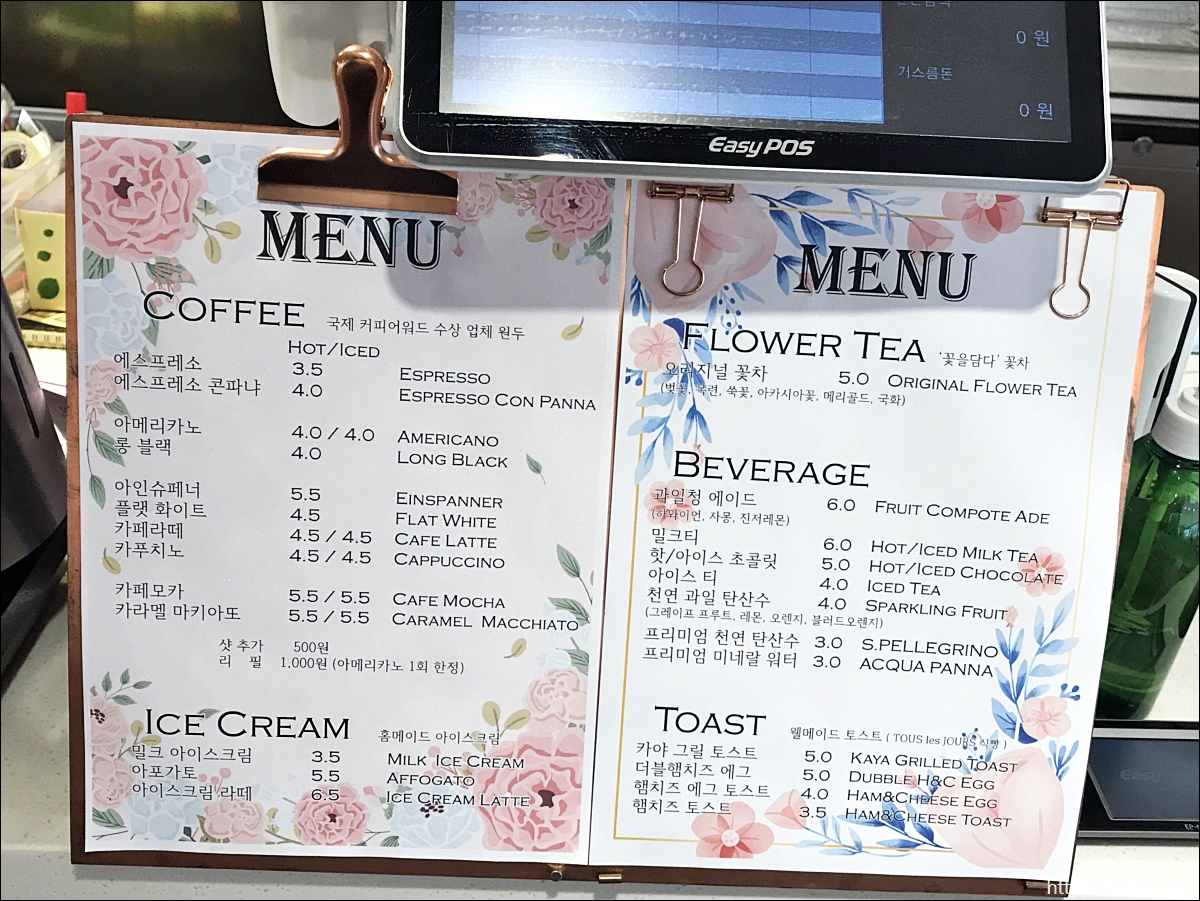 0 원
거스름돈
0 원
EasyPOS
MENU
COFFEE 국제 커피어워드 수상 업체 원두
HOT/ICED
에스프레소 3.5 ESPRESSO
에스프레소 콘파냐 4.0 ESPRESSO CON PANNA
아메리카노 4.0 / 4.0 AMERICANO
롱 블랙 4.0 LONG BLACK
아인슈페너 5.5 EINSPANNER
플랫 화이트 4.5 FLAT WHITE
카페라떼 4.5 / 4.5 CAFE LATTE
카푸치노 4.5 / 4.5 CAPPUCCINO
카페모카 5.5 / 5.5 CAFE MOCHA
카라멜 마키아또 5.5 / 5.5 CARAMEL MACCHIATO
샷 추가 500원
리 필 1,000원 (아메리카노 1회 한정)
ICE CREAM 홈메이드 아이스크림
밀크 아이스크림 3.5 MILK ICE CREAM
아포가토 5.5 AFFOGATO
아이스크림 라떼 6.5 ICE CREAM LATTE
MENU
FLOWER TEA '꽃을담다' 꽃차
오리지널 꽃차 5.0 ORIGINAL FLOWER TEA
(벚꽃, 목련, 쑥꽃, 아카시아꽃, 메리골드, 국화)
BEVERAGE
과일청 에이드 6.0 FRUIT COMPOTE ADE
(하와이언, 자몽, 진저레몬)
밀크티 6.0 HOT/ICED MILK TEA
핫/아이스 초콜릿 5.0 HOT/ICED CHOCOLATE
아이스 티 4.0 ICED TEA
천연 과일 탄산수 4.0 SPARKLING FRUIT
(그레이프 프루트, 레몬, 오렌지, 블러드오렌지)
프리미엄 천연 탄산수 3.0 S.PELLEGRINO
프리미엄 미네랄 워터 3.0 ACQUA PANNA
TOAST 웰메이드 토스트 ( TOUS les JOURS 식빵 )
카야 그릴 토스트 5.0 KAYA GRILLED TOAST
더블햄치즈 에그 5.0 DUBBLE H&C EGG
햄치즈 에그 토스트 4.0 HAM&CHEESE EGG
햄치즈 토스트 3.5 HAM&CHEESE TOAST